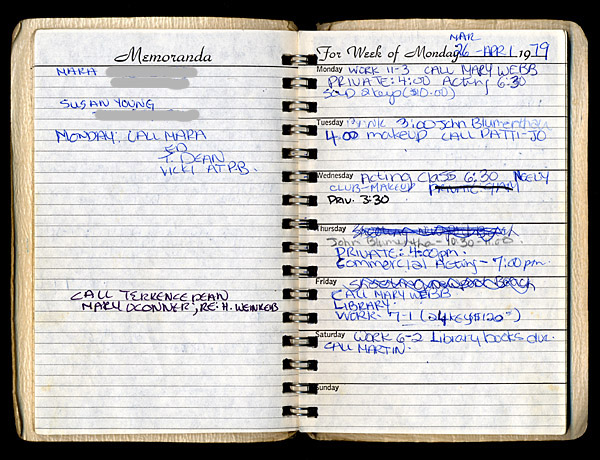 Memoranda
MARA
SUSAN YOUNG
MONDAY: CALL MARA
ED
T. DEAN
VICKI AT P.B.
CALL TERRENCE DEAN
MARY OCONNER, RE: H. WEINKEB
MAR
For Week of Monday 26 - APR 1, 1979
Monday WORK 11-3 CALL MARY WEBB
PRIVATE: 4:00 Acting 6:30
SOLD 2 keys ($10.00)
Tuesday 3:00 John Blumenthau
4:00 makeup CALL PATTI-JO
Wednesday Acting Class 6:30 NEELY
CLUB-MAKEUP PRIVATE 9AM
PRIV. 3:30
Thursday
John Blumentha - 10:30 - 11:00
PRIVATE: 4:00pm.
Commercial Acting - 7:00pm.
Friday
CALL MARY WEBB
LIBRARY.
WORK 7-1 (24 keys $120")
Saturday WORK 6-2 Library books due.
CALL MARTIN.
Sunday